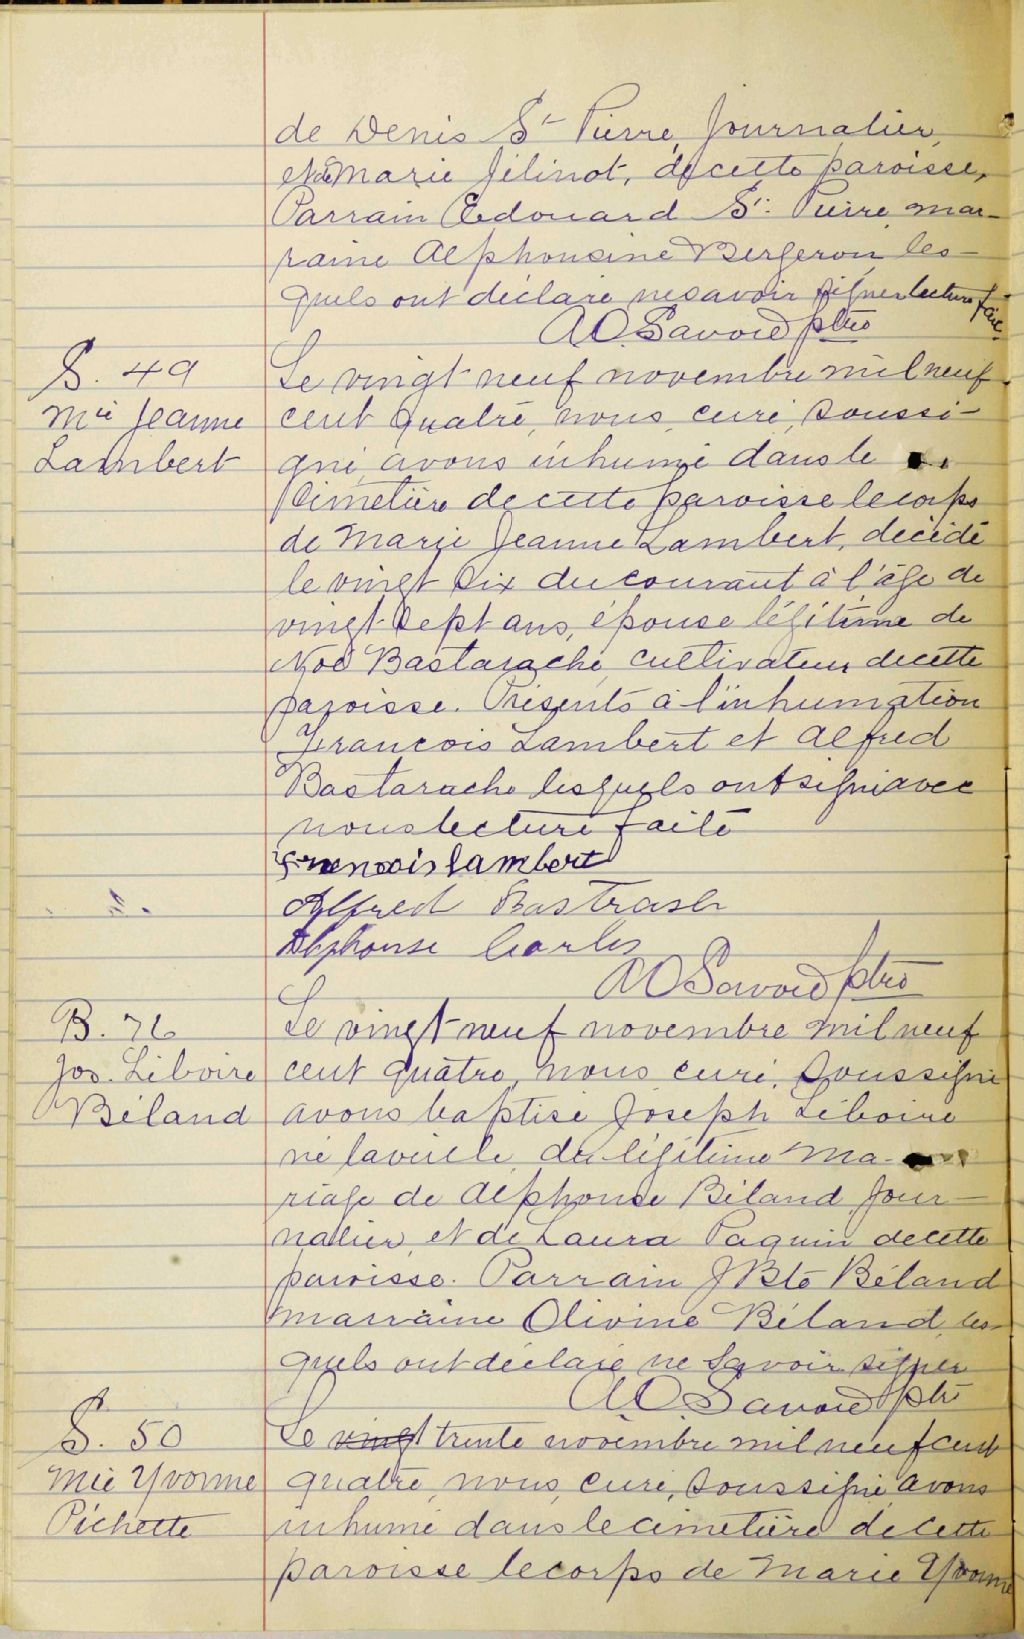 de Denis St Pierre, Journalier,
et de Marie Jélinot, de cette paroisse,
Parrain Edouard St: Pierre mar-
raine Alphonsine Bergeron, les-
quels ont déclaré ne savoir signer lecture faite.
A O. Savoie ptre
S. 49
Mie Jeanne
Lambert
Le vingt neuf novembre mil neuf
cent quatre, nous, curé, soussi-
gné, avons inhumé dans le
cimetière de cette paroisse le corps
de Marie Jeanne Lambert, décédé
le vingt six du courant à l'âge de
vingt sept ans, épouse légitime de
Noé Bastarache, cultivateur de cette
paroisse. Présents à l'inhumation
Francois Lambert et Alfred
Bastarache lesquels ont signé avec
nous lecture faite
francois lambert
Alfred Bastrash
Alphonse
A O Savoie ptre
B. 76
Jos. Liboire
Béland
Le vingt-neuf novembre mil neuf
cent quatre, nous, curé, soussigné
avons baptisé Joseph Léboire
né la veille, du légitime ma-
riage de Alphonse Béland, Jour-
nalier, et de Laura Paquin de cette
paroisse. Parrain J Bte Béland
marraine Olivine Béland, les-
quels ont déclaré ne savoir signer
A O. Savoie ptre
S. 50
Mie Yvonne
Pichette
Le vingt trente novembre mil neuf cent
quatre, nous, curé, soussigné, avons
inhumé dans le cimetière de cette
paroisse le corps de Marie Yvonne